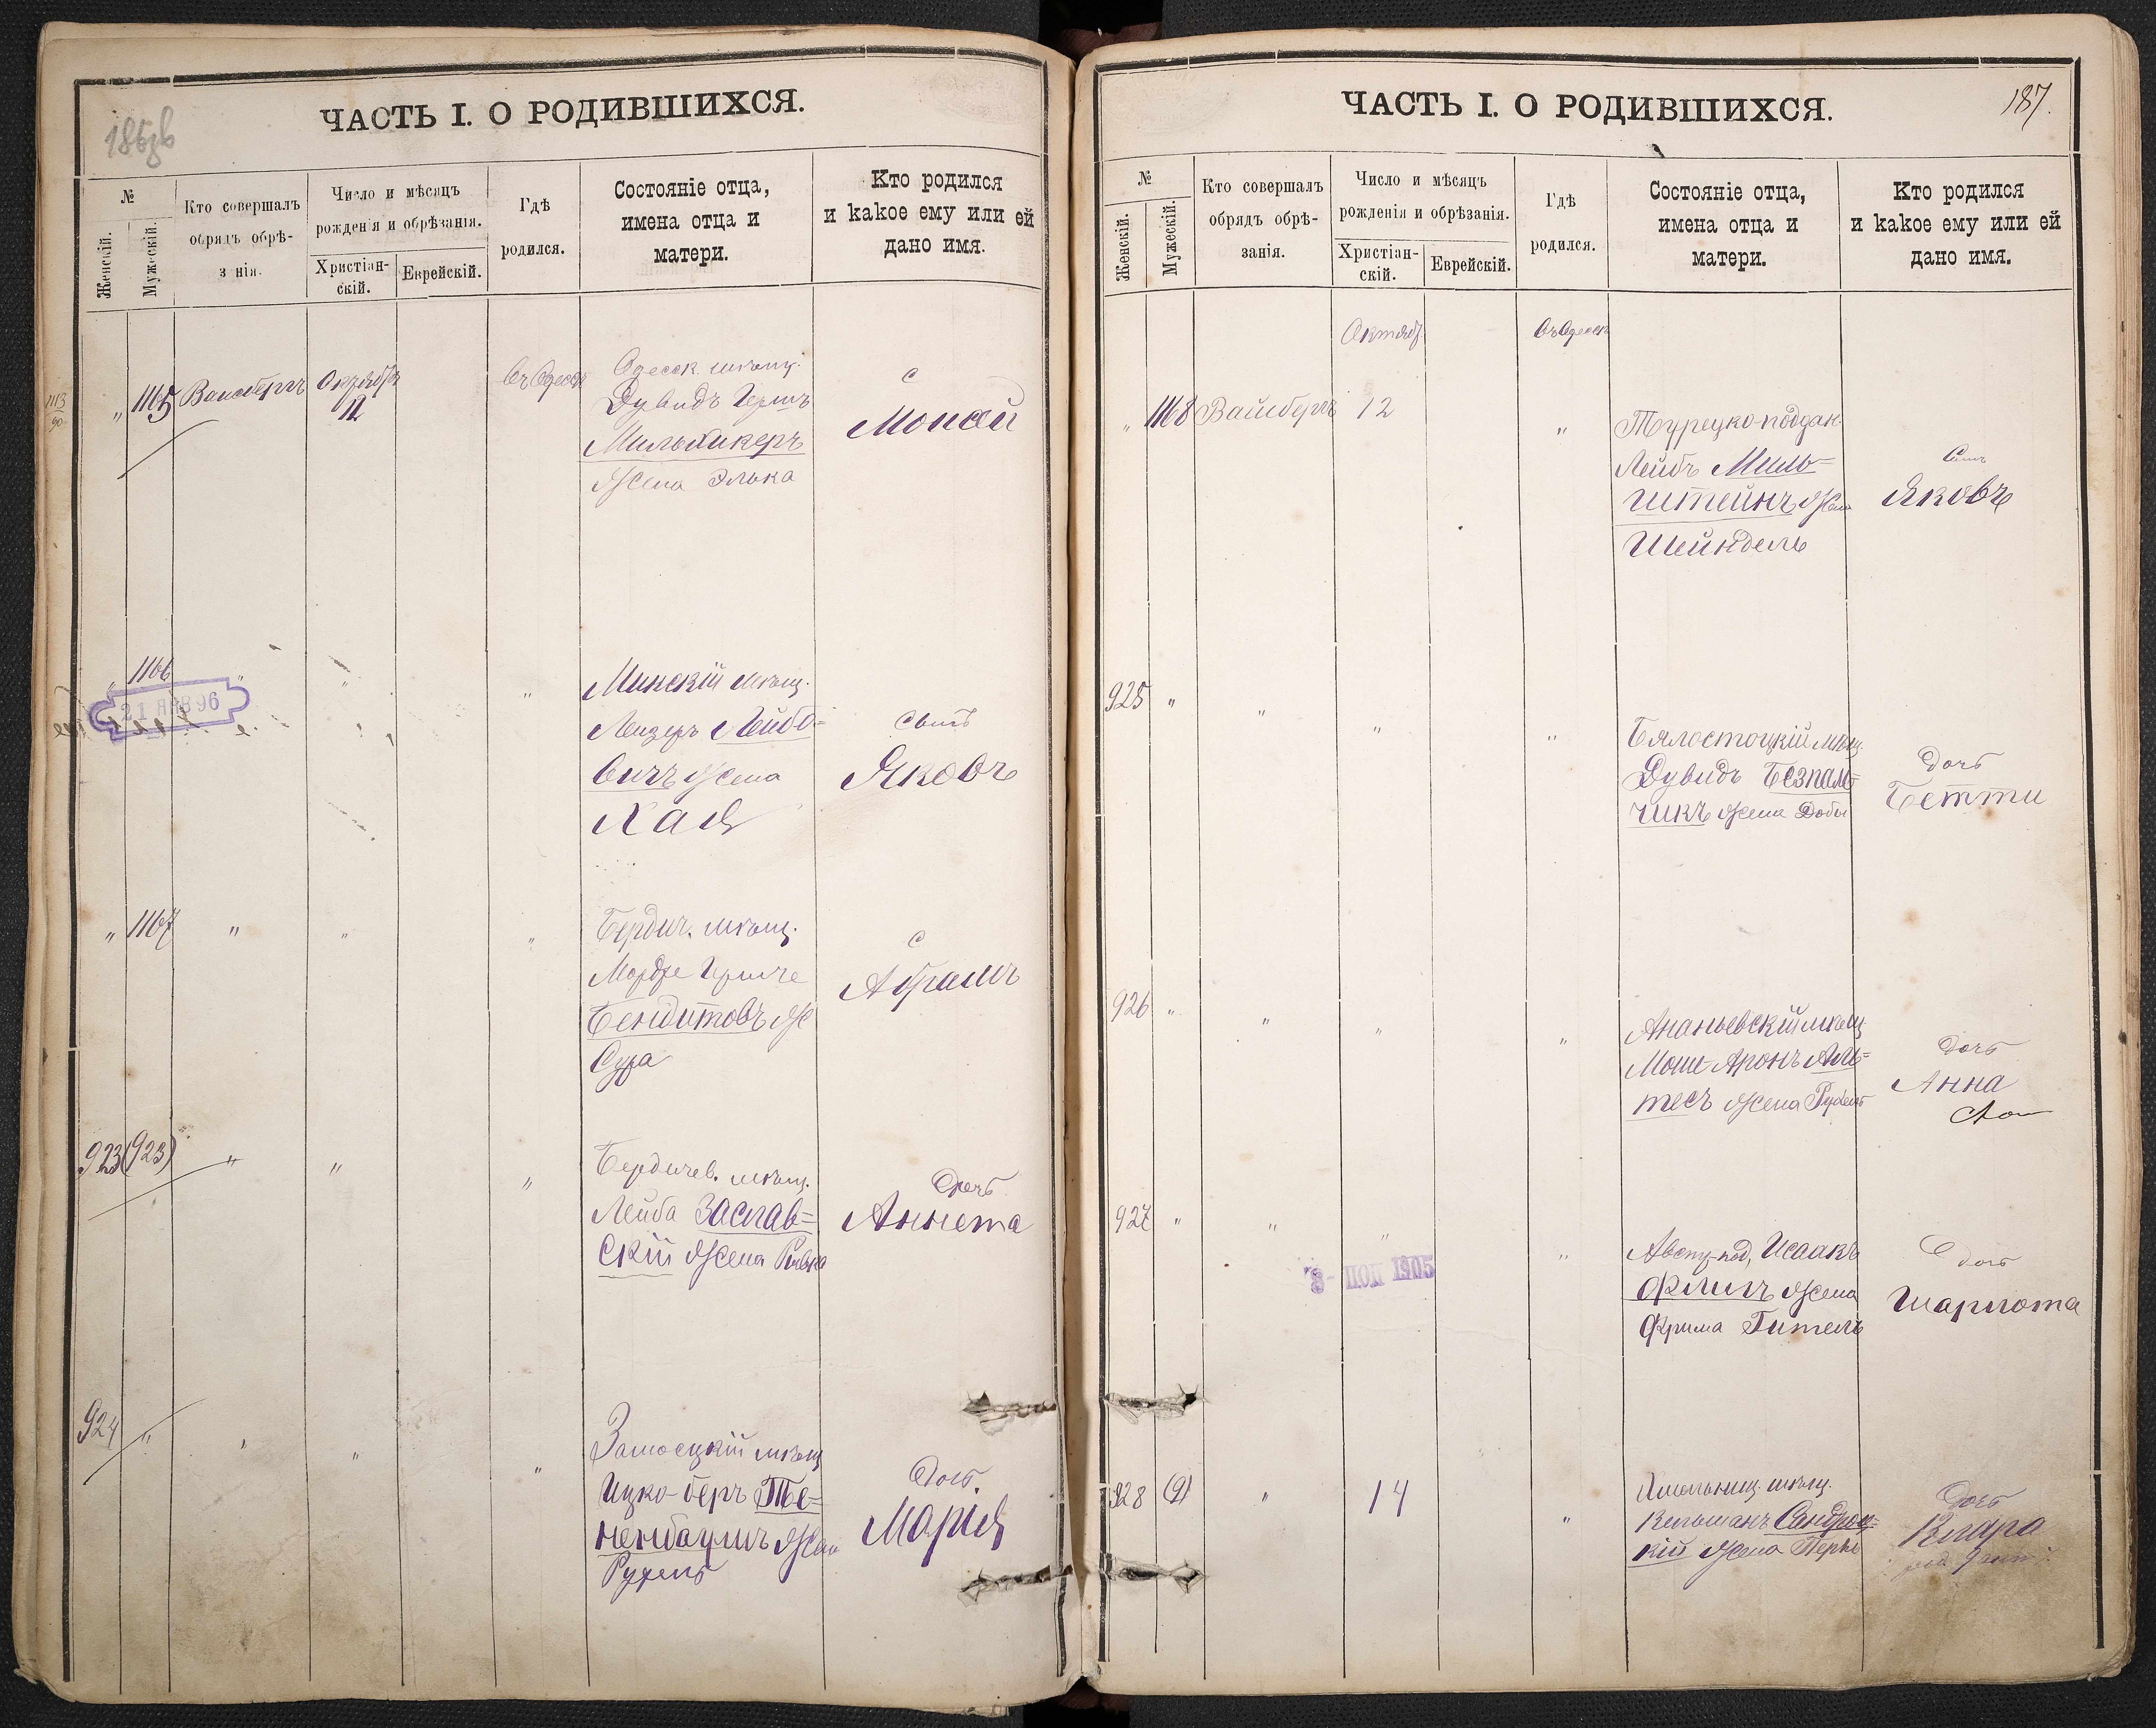 186об
ЧАСТЬ I. О РОДИВШИХСЯ.
№
Женскій.
Мужескій.
Кто совершалъ
обрядъ обрѣ-
з нія.
Число и мѣсяцъ
рожденія и обрѣзанія.
Христіан-
скій.
Еврейскій.
Гдѣ
родился.
Состоянiе отца,
имена отца и
матери.
Кто родился
и какое ему или ей
дано имя.
1113
90
" 1165 Вайсбергъ Октября
12
въ Одессѣ
Одесск. мѣщ.
Дувидъ Гершъ
Мильхикеръ
жена Элька
С
Моисей
" 1166 " " "
21 ЯНВ 96
Минскій мѣщ.
Лейзеръ Лейбо-
вичъ жена
Хая
Сынъ
Яковъ
" 1167 " " "
Бердич. мѣщ.
Мордхе
Бендитовъ ж
Сура
С
Абрамъ
923 (923) " " "
Бердичев. мѣщ.
Лейба Заслав-
скій жена Ривка
Дочь
Аннета
924 " " " "
Замосцкій мѣщ
Ицко-Беръ Те-
ненбаумъ жена
Рухель
Дочь
Марія
187.
ЧАСТЬ I. О РОДИВШИХСЯ.
№
Женскій.
Мужескій.
Кто совершалъ
обрядъ обрѣ-
занія.
Число и мѣсяцъ
рожденія и обрѣзанія.
Христіан-
скій.
Еврейскій.
Гдѣ
родился.
Состоянiе отца,
имена отца и
матери.
Кто родился
и какое ему или ей
дано имя.
Октяб.
въ Одессѣ
" 1168 Вайсбергъ 12 "
Турецко-поддан.
Лейбъ Миль-
штейнъ жена
Шейндель
Сынъ
Яковъ
925 " " " "
Бялостоцкій мѣщ.
Дувидъ Безпаль-
чикъ жена Добы
Дочь
Бетти
926 " " " "
Ананьевскій мѣщ
Моше-Аронъ Аль-
тесъ жена Рухель
Дочь
Анна
927 " " " "
1905
Австр-под, Исаакъ
Флигъ жена
Фрима Гитель
Дочь
Шарлота
928 (9) " 14 "
Хмельниц. мѣщ.
Кельманъ
кій жена Перль
Дочь
Клара